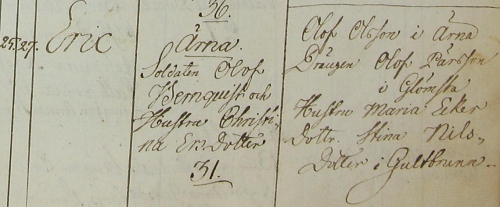 36.
25. 27. Eric
Ärna.
Soldaten Olof
Wernquist och
Hustru Christi-
na Ersdotter
31.
Olof Olsson i Ärna
Drängen Olof Pärsson
i Glömsta
Hustru Maria Eriks
dottr. Stina Nils-
dotter i Gultbrunn.